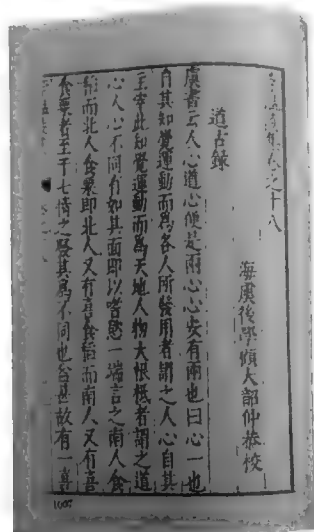 李温陵集卷之十八
海虞後學顧大韶仲恭校
道古錄
虞書云人心道心便是兩心心安有兩也曰心一也
自其知覺運動而爲各人所獨用者謂之人心自其
主宰此知覺運動而爲天地人物大根柢者謂之道
心人心不同有如其面即以嗜慾一端言之南人食
稻而北人食粟即北人又有喜食稻而南人又有喜
食粟者至于七情之發其爲不同也益甚故有一喜
100